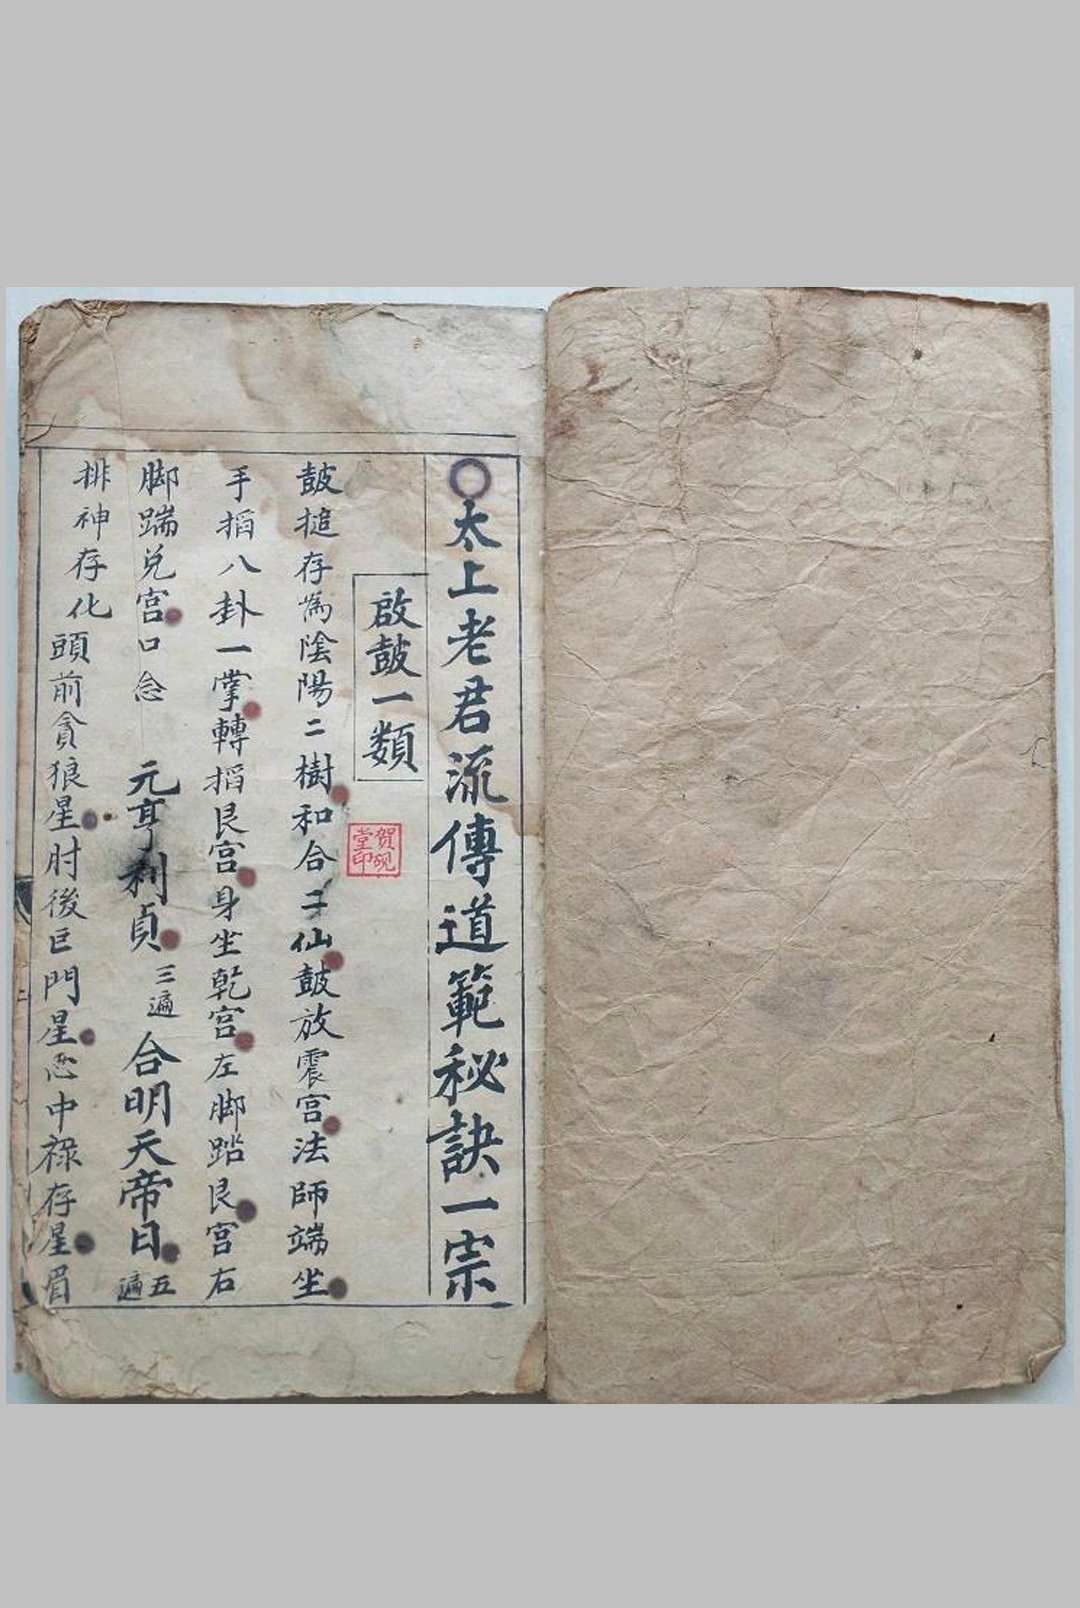 太上老君流傳道範秘訣一宗
啟鼓一類
賀硯堂印
鼓搥存為陰陽二樹和合二仙鼓放震宮法師端坐
手搯八卦一掌轉搯艮宮身坐乾宮左脚踏艮宮右
脚踹兌宮口念 元亨利貞 三遍 合明天帝日 五遍
排神存化頭前貪狼星肘後巨門星心中祿存星眉
二